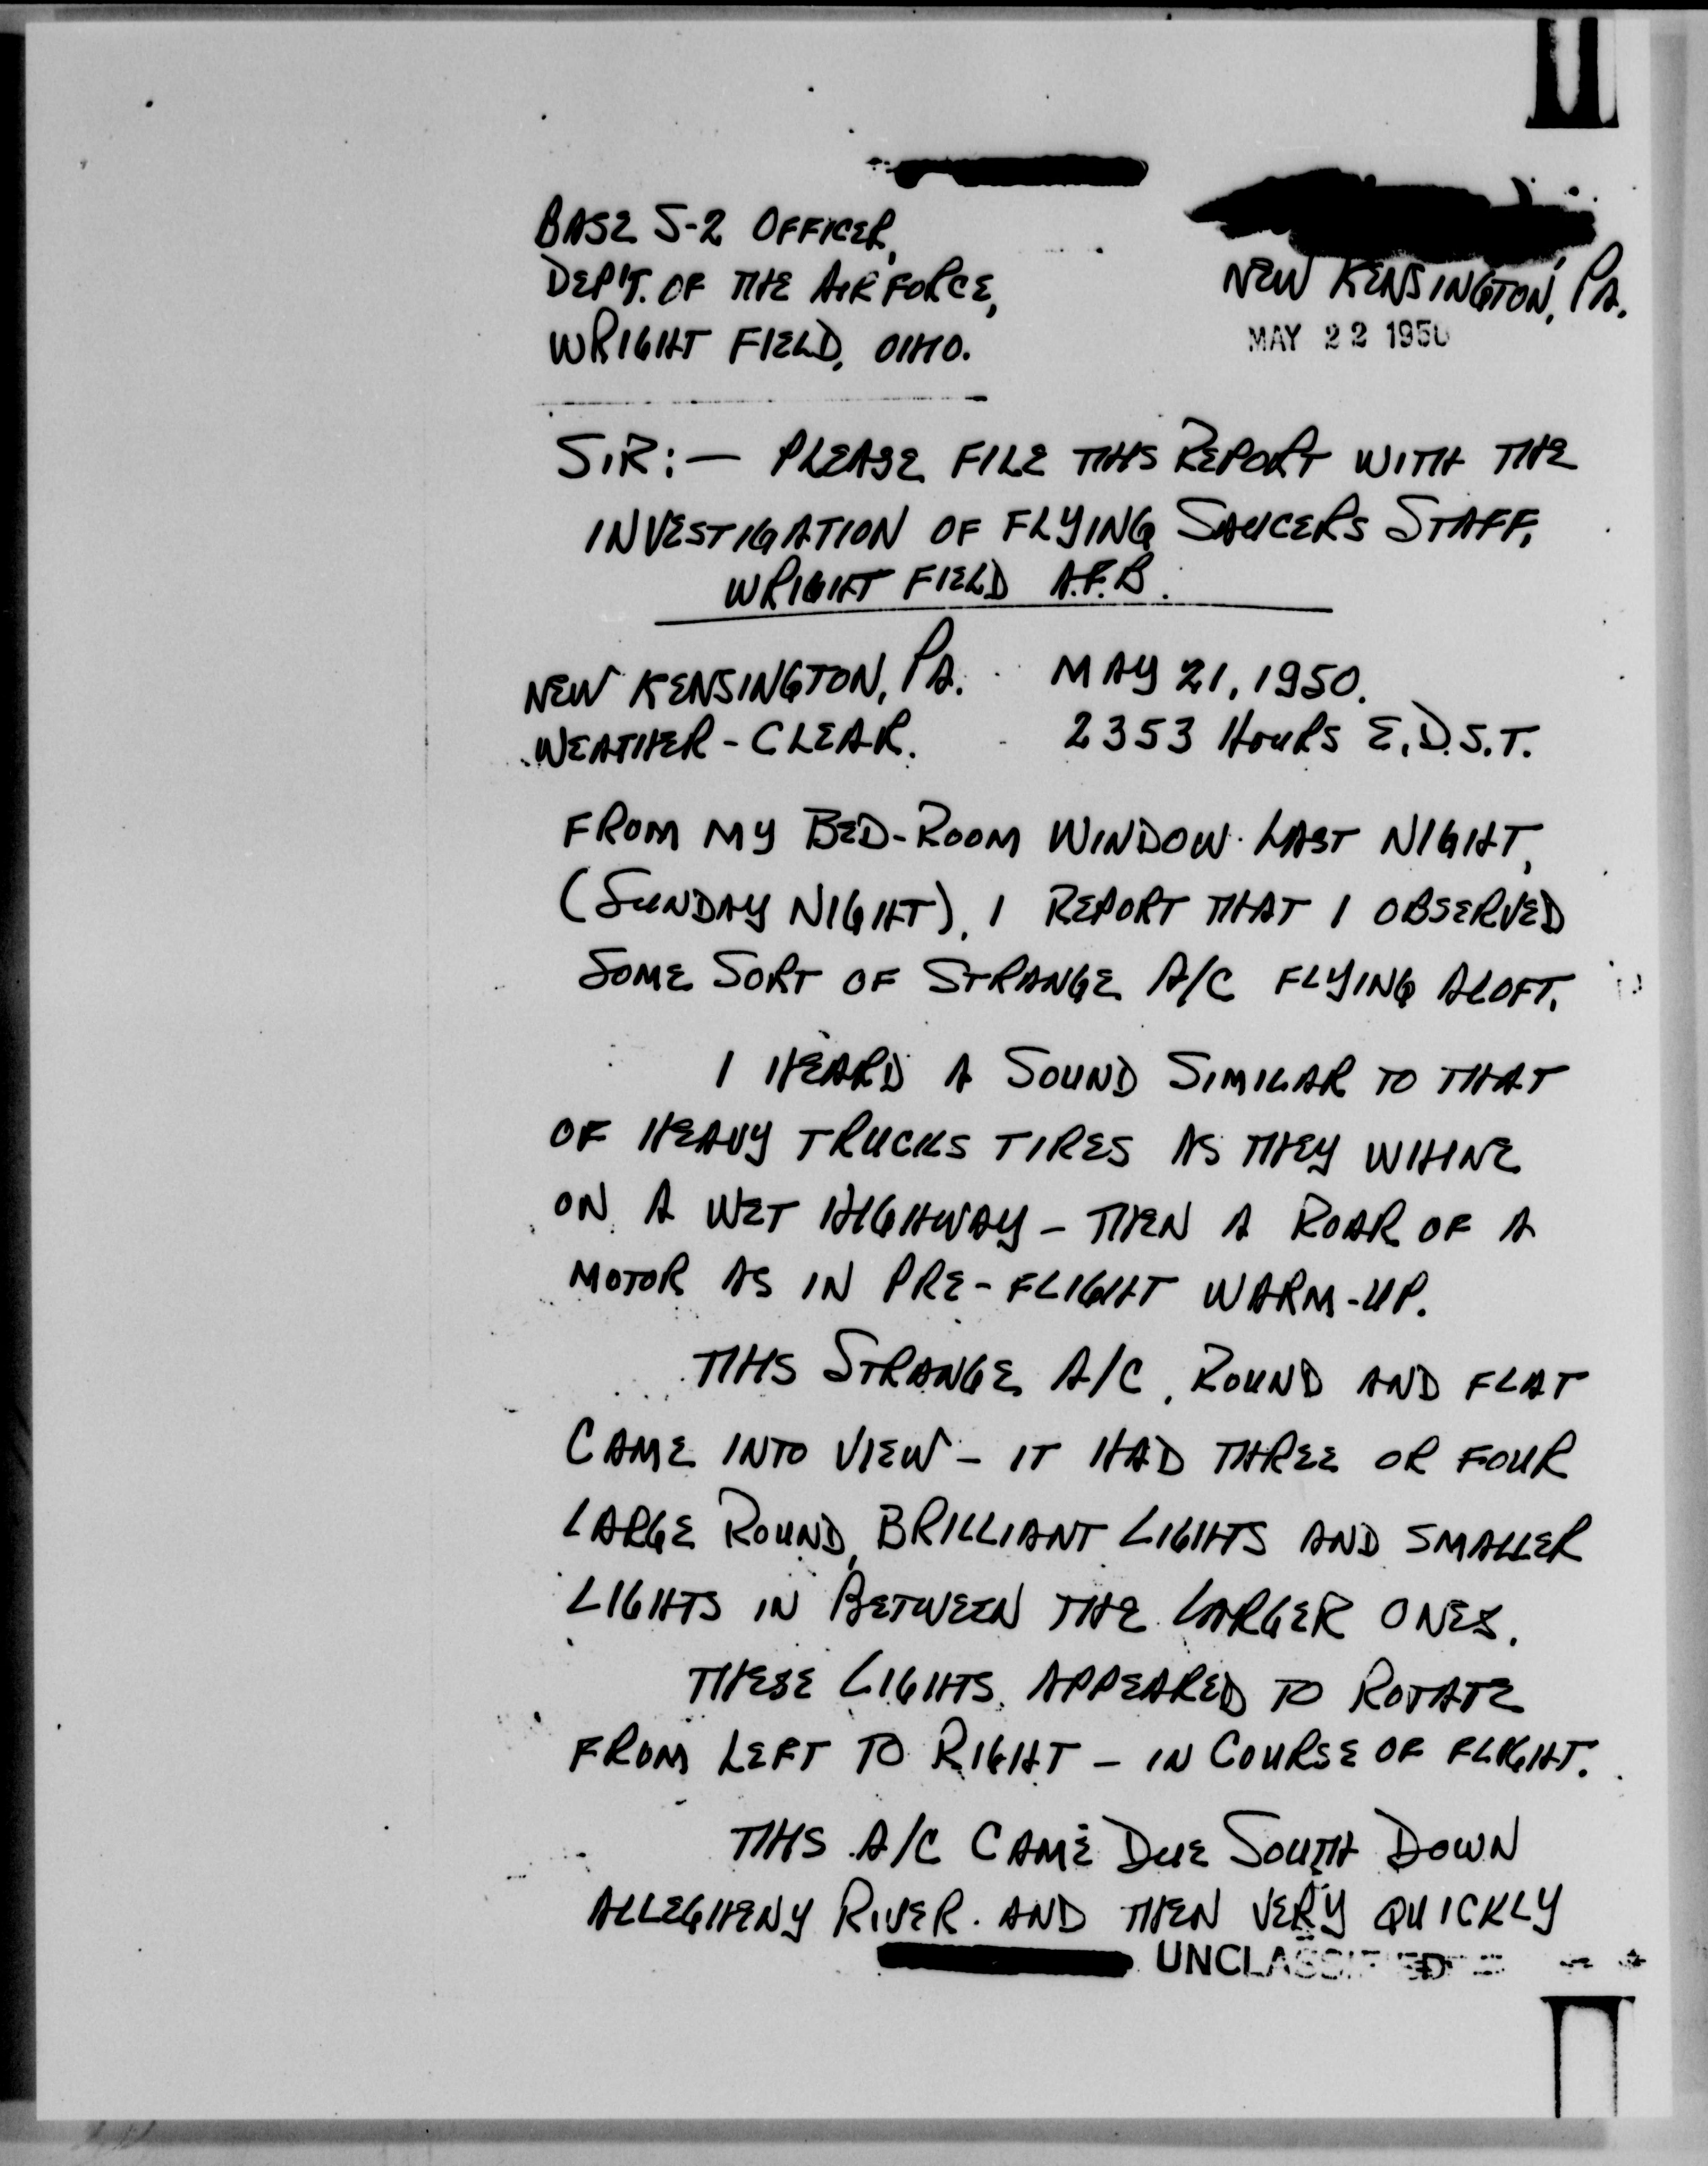 BASE S-2 OFFICER,
DEP'T. OF THE AIR FORCE,
WRIGHT FIELD, OHIO.
NEW KENSINGTON, PA.
MAY 22 1950
SIR:— PLEASE FILE THIS REPORT WITH THE
INVESTIGATION OF FLYING SAUCERS STAFF,
WRIGHT FIELD A.F.B.
NEW KENSINGTON, PA. MAY 21, 1950.
WEATHER - CLEAR. 2353 HOURS E.D.S.T.
FROM MY BED-ROOM WINDOW LAST NIGHT,
(SUNDAY NIGHT), I REPORT THAT I OBSERVED
SOME SORT OF STRANGE A/C FLYING ALOFT.
I HEARD A SOUND SIMILAR TO THAT
OF HEAVY TRUCKS TIRES AS THEY WHINE
ON A WET HIGHWAY - THEN A ROAR OF A
MOTOR AS IN PRE-FLIGHT WARM-UP.
THIS STRANGE A/C, ROUND AND FLAT
CAME INTO VIEW - IT HAD THREE OR FOUR
LARGE ROUND, BRILLIANT LIGHTS AND SMALLER
LIGHTS IN BETWEEN THE LARGER ONES.
THESE LIGHTS APPEARED TO ROTATE
FROM LEFT TO RIGHT - IN COURSE OF FLIGHT.
THIS A/C CAME DUE SOUTH DOWN
ALLEGHENY RIVER. AND THEN VERY QUICKLY
UNCLASSIFIED